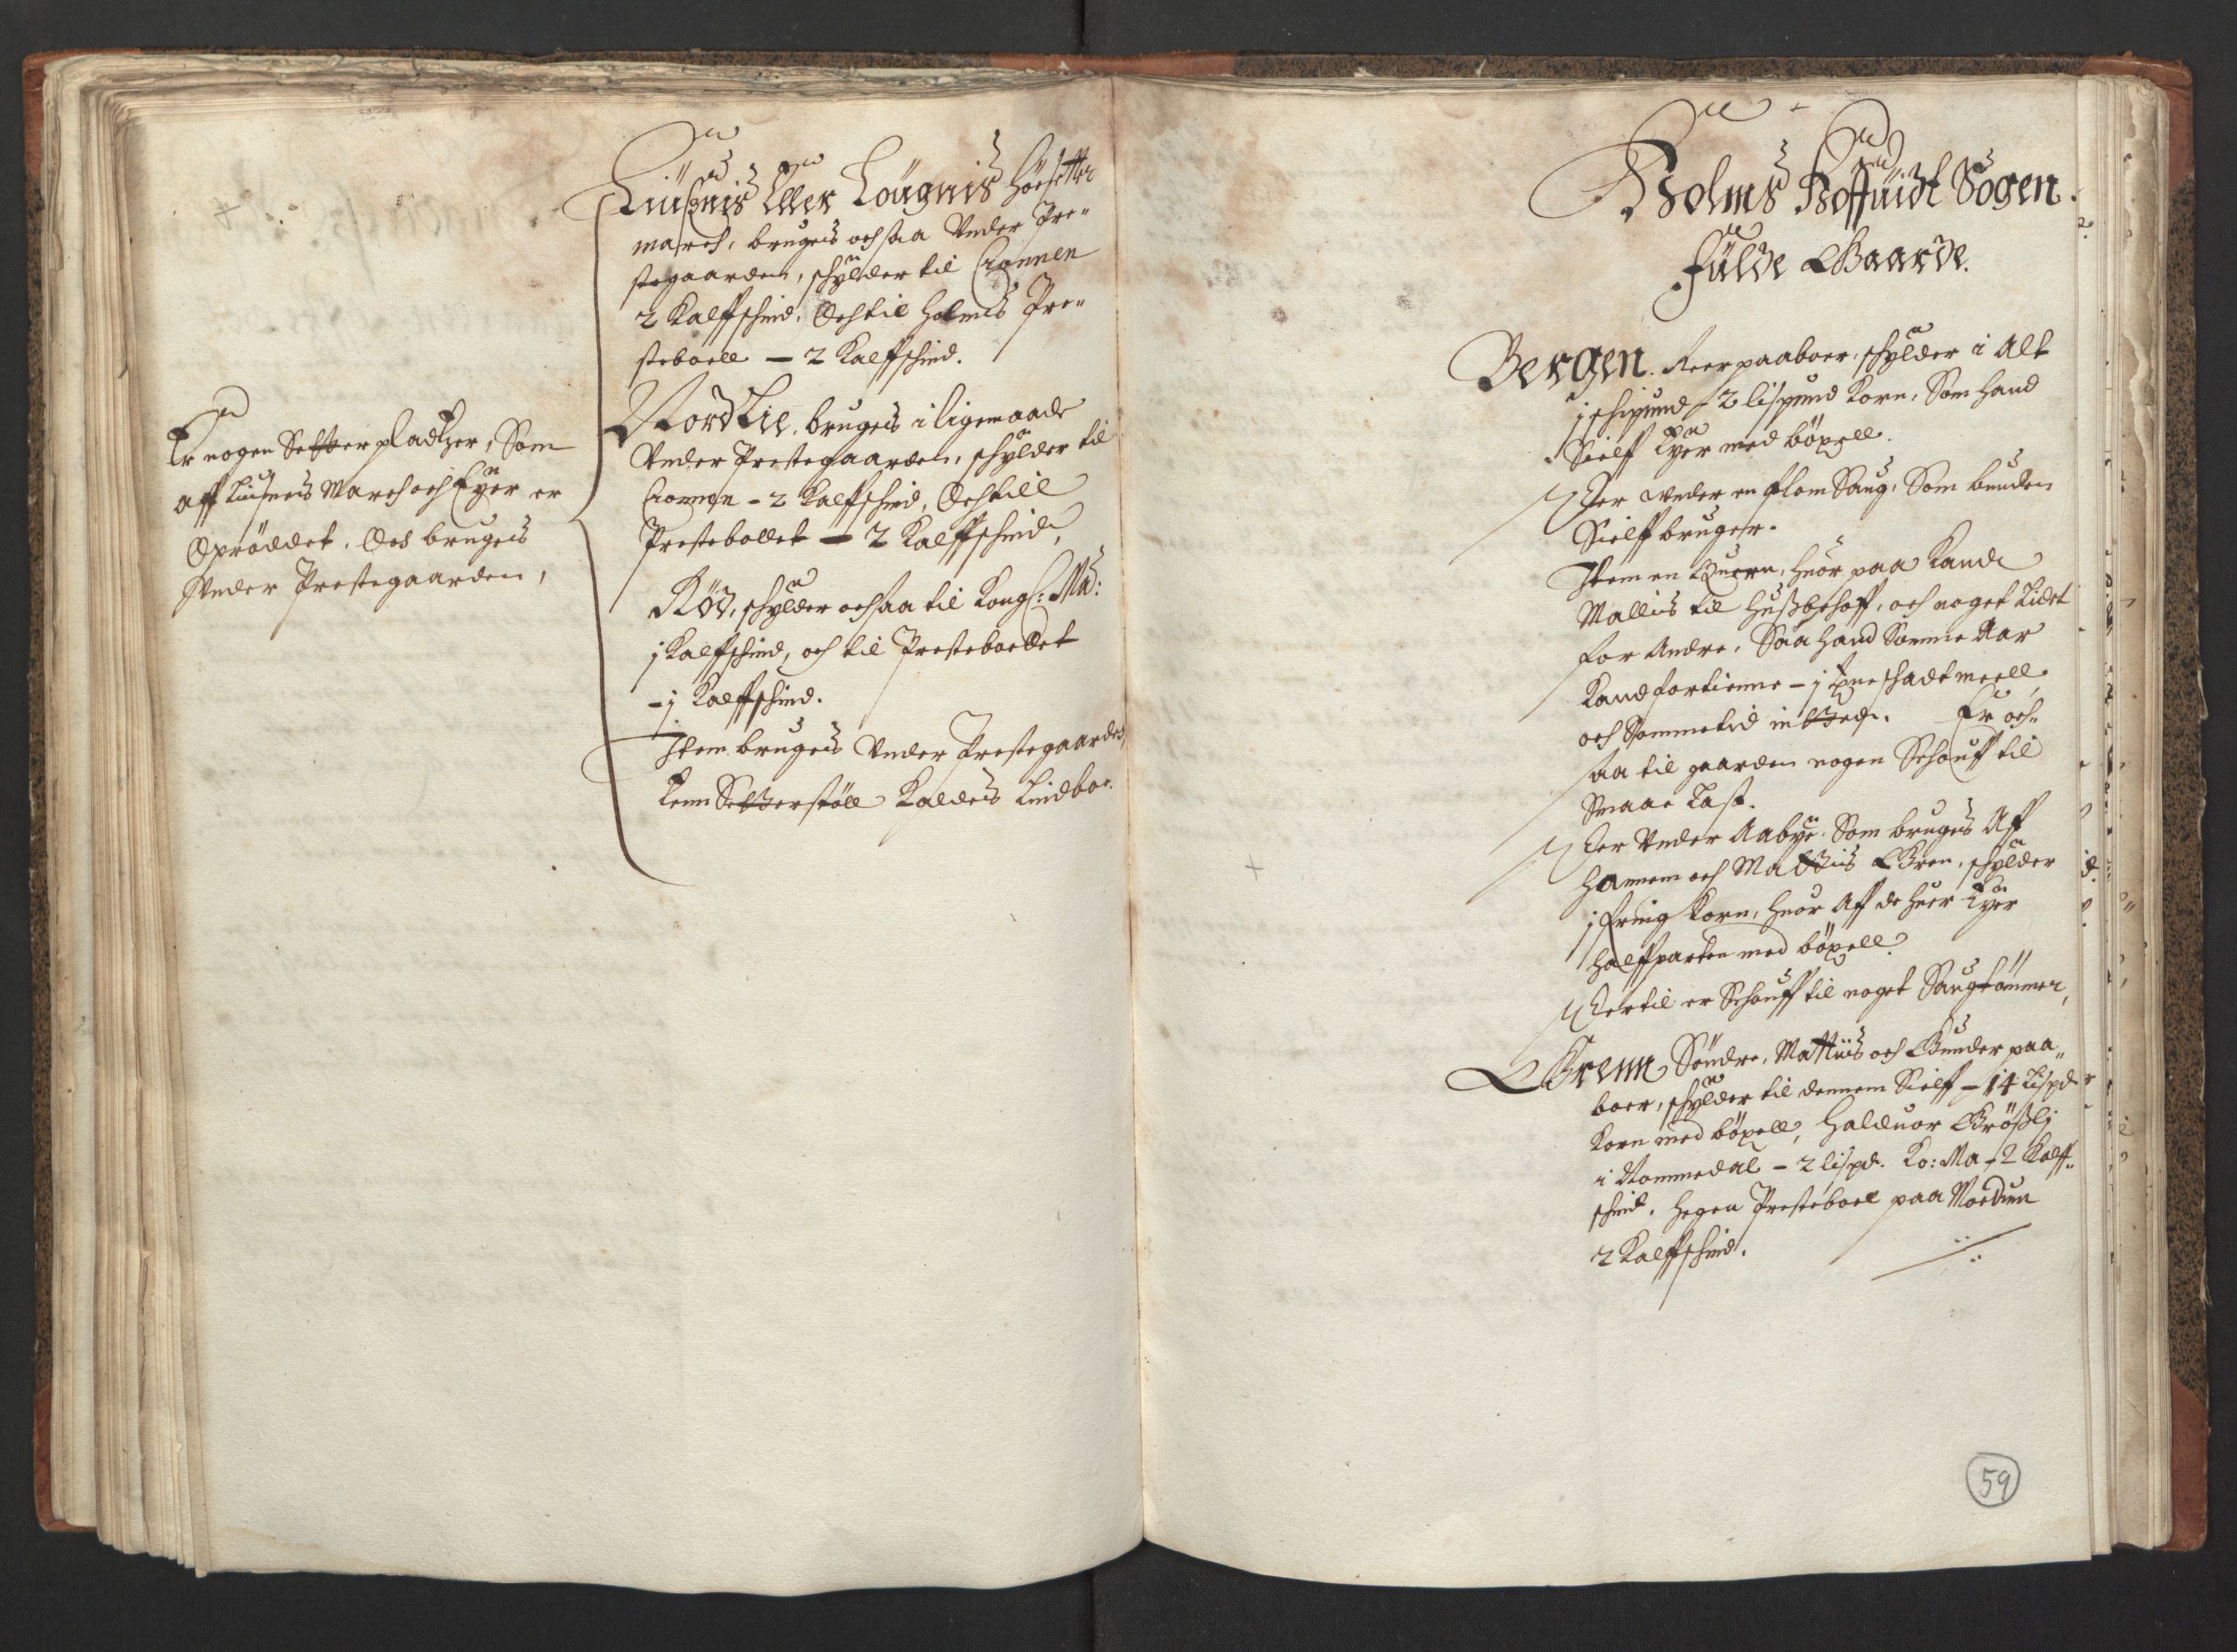 Er nogen Setterpladtzer, Som
aff Liusneis March och Eyer er
Oprøddet. Och brugeis
Under Prestegaarden,
Liusneis Eller Lougneis Høesetter
march, brugeis ochsaa Under Pre-
stegaarden, schylder til Cronnen
2 Kalffschind. Och til Holmes Pre-
steboell - 2 Kalffschind.
Nord Lie, brugeis i ligemaade
Under Prestegaarden, schylder til
Cronnen - 2 Kalffschind, Och till
Prestebollet - 2 Kalffschind,
Rød, schylder ochsaa til Kongl: Ma:
j Kalffschind, och til Presteboellet
- j Kalffschind.
Item brugeis Under Prestegaarden,
Senn Setterstøll Kaldeis Lindboe.
Holms Hoffuidt Sogen.
Fulde Gaarde.
Bergen. Peer paaboer, schylder i Alt
j schipund - 2 lispund Korn, Som hand
Sielff Eyer med bøxell.
Der under en flom Saug, Som bunden
Sielff bruger.
Item en Quern, huor paa Kand
Mallis til Hussbehoff, och noget Lidet
for Andre, Saa hand Somme Aar
Kand fortienne - j tønne schadt meell,
och Sommetid intted. Er och-
saa til gaarden nogen Schouff til
Smaae Last.
Der Under Aabye. Som brugeis Aff
hannem och Mattis Gren, schylder
j fring Korn, huor Aff de huer Eyer
halffparten med bøxell.
Dertil er Schouff til noget Saugtømmer,
Grenn Søndre, Mattiis och Gunder paa-
boer, schylder til dennem Sielff - 14 Lispd
Korn med bøxell, Halduor Grøsslj
i Nommedal - 2 lispd. Ko: Ma - 2 Kalff-
schind. Hegen Presteboel paa Modum
2 Kalffschind.
59